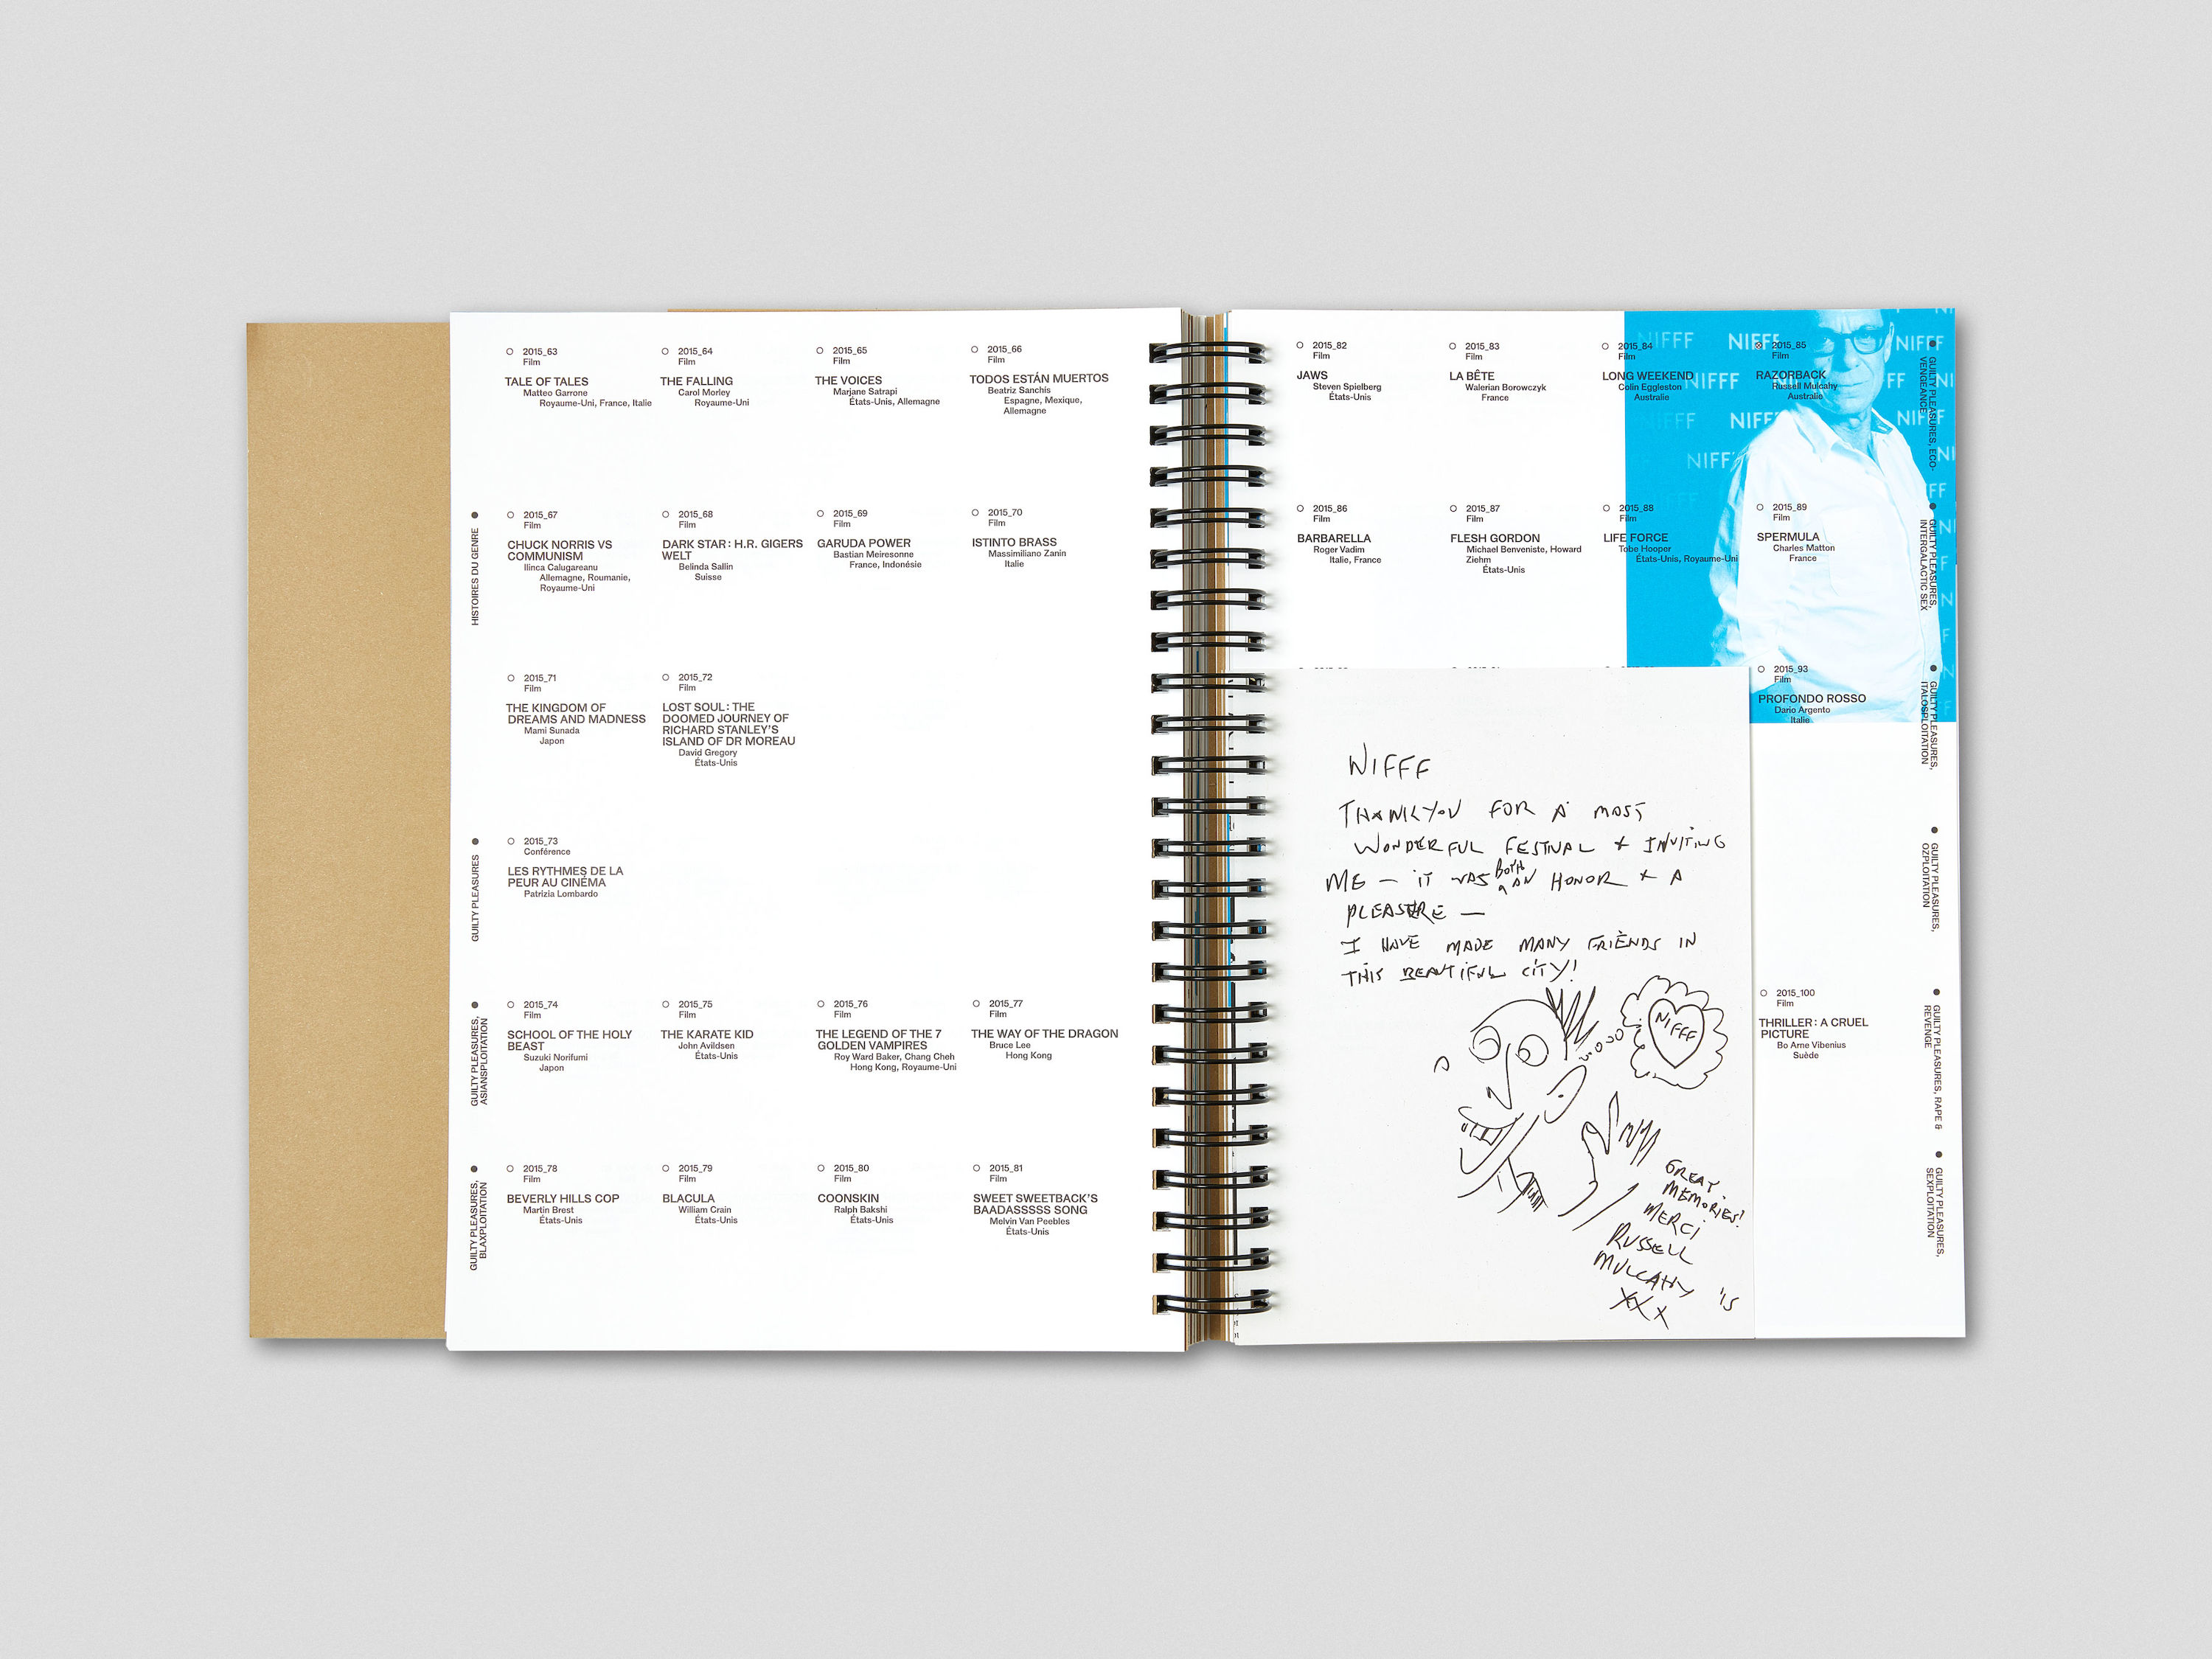 2015_63
Film
TALE OF TALES
Matteo Garrone
Royaume-Uni, France, Italie
2015_64
Film
THE FALLING
Carol Morley
Royaume-Uni
2015_65
Film
THE VOICES
Marjane Satrapi
États-Unis, Allemagne
2015_66
Film
TODOS ESTÁN MUERTOS
Beatriz Sanchis
Espagne, Mexique,
Allemagne
HISTOIRES DU GENRE
2015_67
Film
CHUCK NORRIS VS
COMMUNISM
Ilinca Calugareanu
Allemagne, Roumanie,
Royaume-Uni
2015_68
Film
DARK STAR : H.R. GIGERS
WELT
Belinda Sallin
Suisse
2015_69
Film
GARUDA POWER
Bastian Meiresonne
France, Indonésie
2015_70
Film
ISTINTO BRASS
Massimiliano Zanin
Italie
2015_71
Film
THE KINGDOM OF
DREAMS AND MADNESS
Mami Sunada
Japon
2015_72
Film
LOST SOUL : THE
DOOMED JOURNEY OF
RICHARD STANLEY'S
ISLAND OF DR MOREAU
David Gregory
États-Unis
GUILTY PLEASURES
2015_73
Conférence
LES RYTHMES DE LA
PEUR AU CINÉMA
Patrizia Lombardo
GUILTY PLEASURES,
ASIANSPLOITATION
2015_74
Film
SCHOOL OF THE HOLY
BEAST
Suzuki Norifumi
Japon
2015_75
Film
THE KARATE KID
John Avildsen
États-Unis
2015_76
Film
THE LEGEND OF THE 7
GOLDEN VAMPIRES
Roy Ward Baker, Chang Cheh
Hong Kong, Royaume-Uni
2015_77
Film
THE WAY OF THE DRAGON
Bruce Lee
Hong Kong
GUILTY PLEASURES,
BLAXPLOITATION
2015_78
Film
BEVERLY HILLS COP
Martin Brest
États-Unis
2015_79
Film
BLACULA
William Crain
États-Unis
2015_80
Film
COONSKIN
Ralph Bakshi
États-Unis
2015_81
Film
SWEET SWEETBACK'S
BAADASSSSS SONG
Melvin Van Peebles
États-Unis
2015_82
Film
JAWS
Steven Spielberg
États-Unis
2015_83
Film
LA BÊTE
Walerian Borowczyk
France
2015_84
Film
LONG WEEKEND
Colin Eggleston
Australie
2015_85
RAZORBACK
Russell Mulcahy
Australie
GUILTY PLEASURES, ECO-
VENGEANCE
NIFFF
NIFFF
NIFFF
NIFFF
NIFFF
2015_86
Film
BARBARELLA
Roger Vadim
Italie, France
2015_87
Film
FLESH GORDON
Michael Benveniste, Howard
Ziehm
États-Unis
2015_88
Film
LIFE FORCE
Tobe Hooper
États-Unis, Royaume-Uni
2015_89
Film
SPERMULA
Charles Matton
France
GUILTY PLEASURES,
INTERGALACTIC SEX
2015_93
Film
PROFONDO ROSSO
Dario Argento
Italie
GUILTY PLEASURES,
ITALOSPLOITATION
GUILTY PLEASURES,
OZPLOITATION
2015_100
Film
THRILLER : A CRUEL
PICTURE
Bo Arne Vibenius
Suède
GUILTY PLEASURES, RAPE &
REVENGE
GUILTY PLEASURES,
SEXPLOITATION
NIFFF
THANKYOU FOR A MOST
WONDERFUL FESTIVAL & INVITING
ME – IT WAS BOTH AN HONOR & A
PLEASURE –
I HAVE MADE MANY FRIENDS IN
THIS BEAUTIFUL CITY!
NIFFF
GREAT
MEMORIES!
MERCI
RUSSELL
MULCAHY '15
XXX